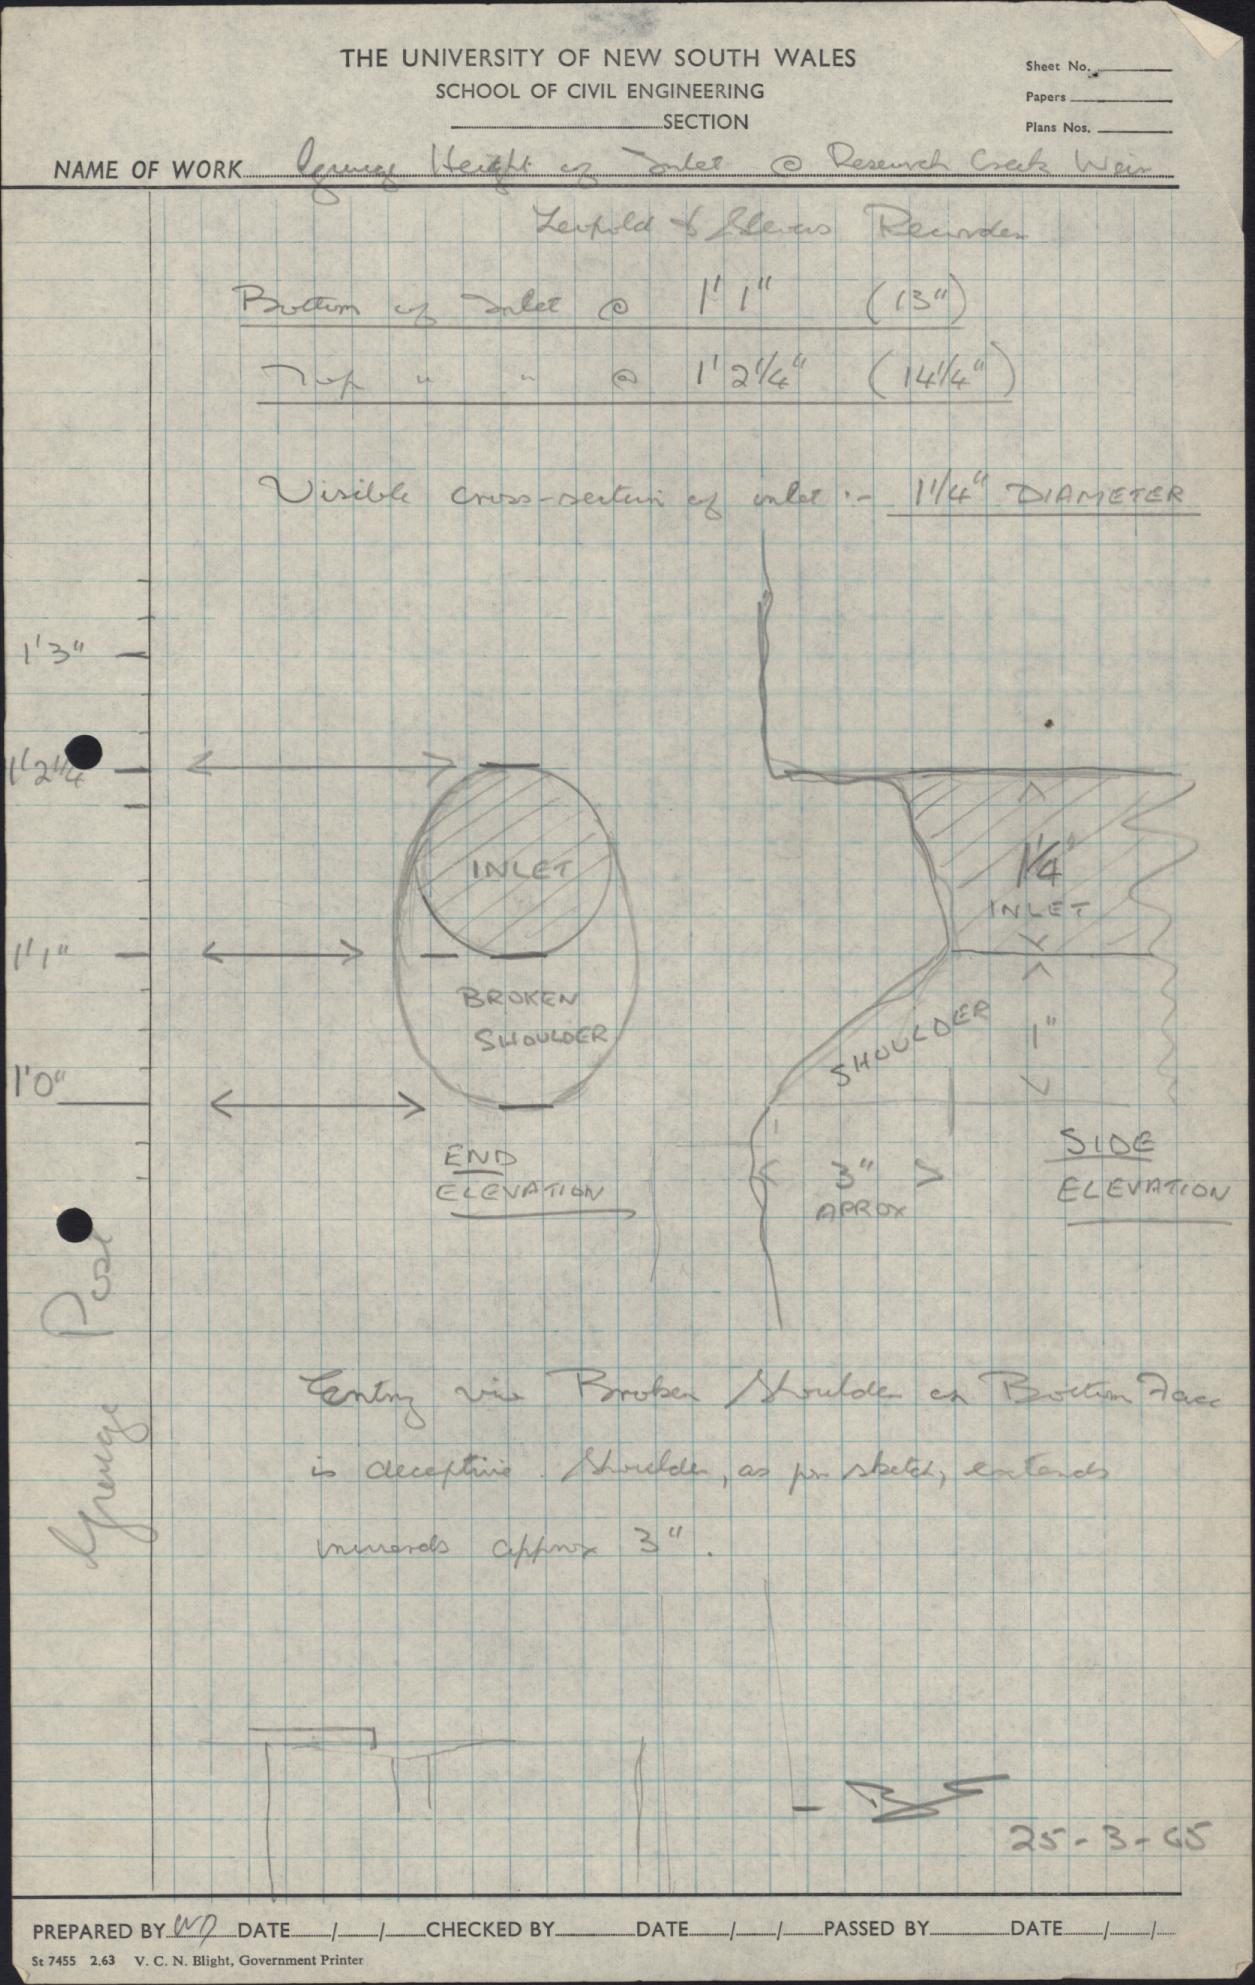 THE UNIVERSITY OF NEW SOUTH WALES
SCHOOL OF CIVIL ENGINEERING
SECTION
Sheet No.
Papers
Plans Nos.
NAME OF WORK Gauge Height of Inlet @ Research Creek Weir
Leopold & Stevens Recorder
Bottom of Inlet @ 1' 1" (13")
Top " " @ 1' 2 1/4" (14 1/4")
Visible cross-section of inlet :- 1 1/4" DIAMETER
1'3"
1'2 1/4
1'1"
1'0"
Gauge Post
INLET
BROKEN
SHOULDER
END
ELEVATION
1 1/4"
INLET
SHOULDER
1"
3"
APROX
SIDE
ELEVATION
Entry via Broken Shoulder on Bottom Face
is deceptive. Shoulder, as per sketch, extends
inwards approx 3".
25-3-65
PREPARED BY DATE / / CHECKED BY DATE / / PASSED BY DATE / /
St 7455 2.63 V. C. N. Blight, Government Printer